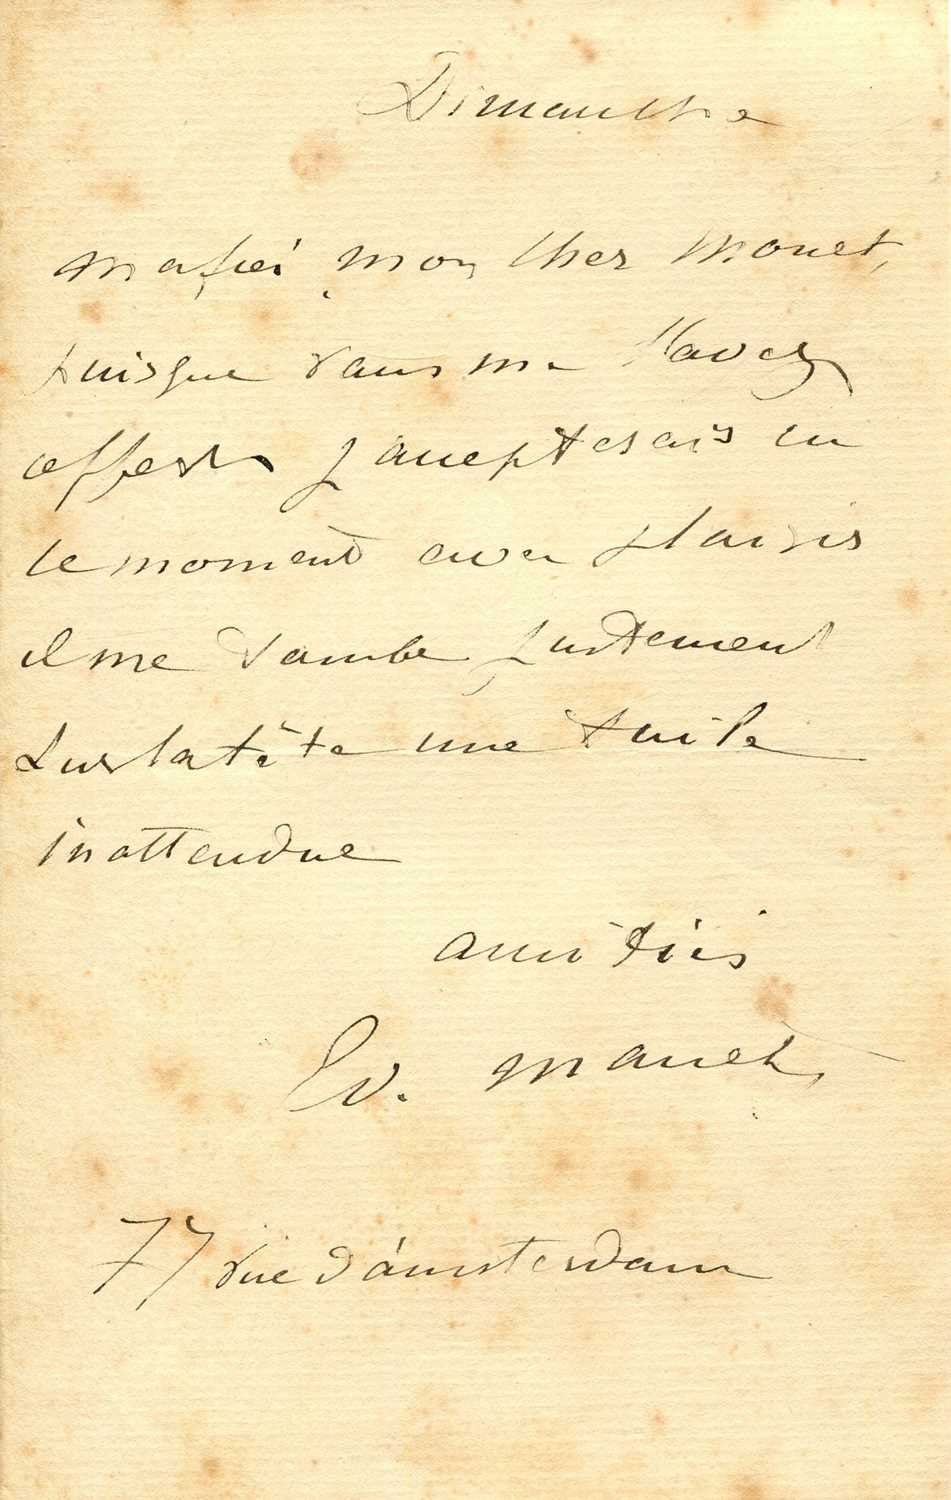 Dimanche
Ma foi mon cher Monet,
puisque vous me l'avez
offert j'accepterais en
ce moment avec plaisir
il me tombe justement
sur la tête une tuile
inattendue
amitiés
Ed. Manet
77 rue d'amsterdam